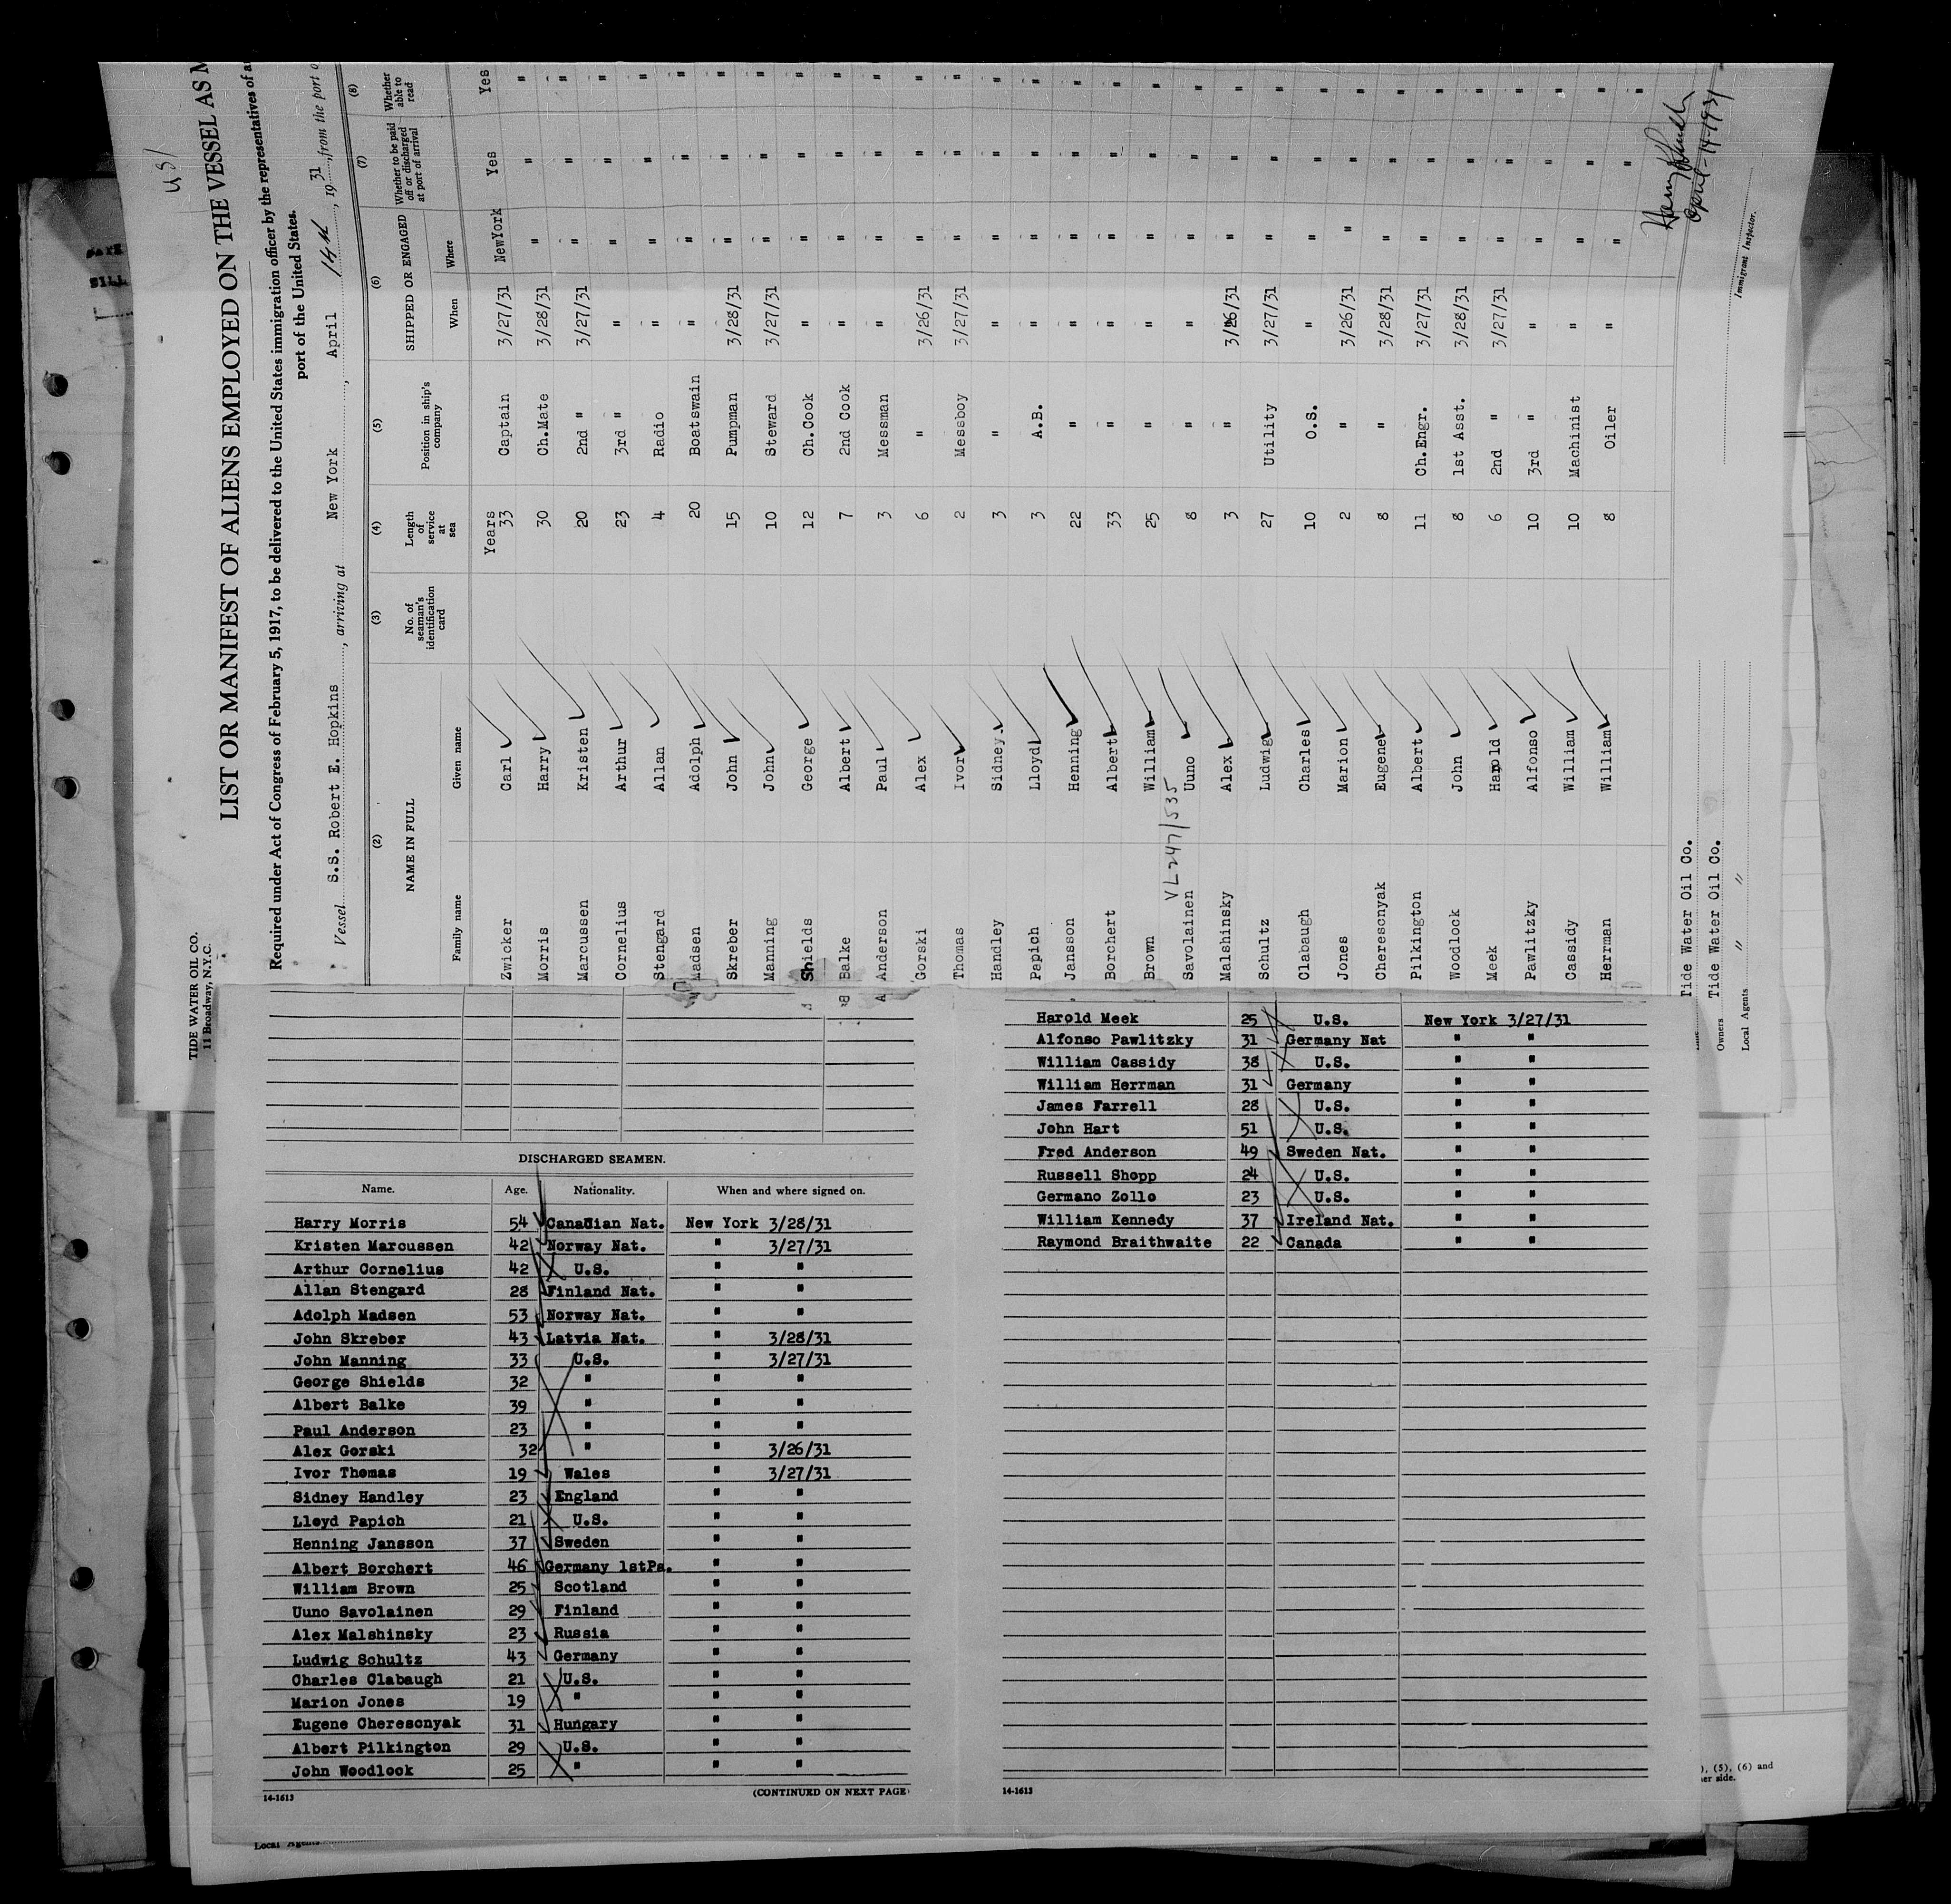 TIDE WATER OIL CO.
11 Broadway, N.Y.C.
U S /
LIST OR MANIFEST OF ALIENS EMPLOYED ON THE VESSEL AS M
Required under Act of Congress of February 5, 1917, to be delivered to the United States immigration officer by the representatives of a
port of the United States.
Vessel S.S. Robert E. Hopkins, arriving at New York, April 14th, 1931, from the port o
(2) (3) (4) (5) (6) (7) (8)
NAME IN FULL No. of seaman's identification card Length of service at sea Position in ship's company SHIPPED OR ENGAGED Whether to be paid off or discharged at port of arrival Whether able to read
Family name Given name When Where
Years
Zwicker Carl 33 Captain 3/27/31 NewYork Yes Yes
Morris Harry 30 Ch.Mate 3/28/31 " " "
Marcussen Kristen 20 2nd " 3/27/31 " " "
Cornelius Arthur 23 3rd " " " " "
Stengard Allan 4 Radio " " " "
Madsen Adolph 20 Boatswain " " " "
Skreber John 15 Pumpman 3/28/31 " " "
Manning John 10 Steward 3/27/31 " " "
Shields George 12 Ch.Cook " " " "
Balke Albert 7 2nd Cook " " " "
Anderson Paul 3 Messman " " " "
Gorski Alex 6 " 3/26/31 " " "
Thomas Ivor 2 Messboy 3/27/31 " " "
Handley Sidney 3 " " " " "
Papich Lloyd 3 A.B. " " " "
Jansson Henning 22 " " " " "
Borchert Albert 33 " " " " "
Brown William 25 " " " " "
VL247/535
Savolainen Uuno 8 " " " " "
Malshinsky Alex 3 " 3/26/31 " " "
Schultz Ludwig 27 Utility 3/27/31 " " "
Clabaugh Charles 10 O.S. " " " "
Jones Marion 2 " 3/26/31 " " "
Cherescnyak Eugene 8 " 3/28/31 " " "
Pilkington Albert 11 Ch.Engr. 3/27/31 " " "
Woodlock John 8 1st Asst. 3/28/31 " " "
Meek Harold 6 2nd " 3/27/31 " " "
Pawlitzky Alfonso 10 3rd " " " " "
Cassidy William 10 Machinist " " " "
Herman William 8 Oiler " " " "
April-14-1931
Immigrant Inspector.
Tide Water Oil Co.
Owners Tide Water Oil Co.
Local Agents " "
DISCHARGED SEAMEN.
Name. Age. Nationality. When and where signed on.
Harry Morris 54 Canadian Nat. New York 3/28/31
Kristen Marcussen 42 Norway Nat. " 3/27/31
Arthur Cornelius 42 U.S. " "
Allan Stengard 28 Finland Nat. " "
Adolph Madsen 53 Norway Nat. " "
John Skreber 43 Latvia Nat. " 3/28/31
John Manning 33 U.S. " 3/27/31
George Shields 32 " " "
Albert Balke 39 " " "
Paul Anderson 23 " " "
Alex Gorski 32 " " 3/26/31
Ivor Thomas 19 Wales " 3/27/31
Sidney Handley 23 England " "
Lloyd Papich 21 U.S. " "
Henning Jansson 37 Sweden " "
Albert Borchert 46 Germany 1stPa. " "
William Brown 25 Scotland " "
Uuno Savolainen 29 Finland " "
Alex Malshinsky 23 Russia " "
Ludwig Schultz 43 Germany " "
Charles Clabaugh 21 U.S. " "
Marion Jones 19 " " "
Eugene Cheresonyak 31 Hungary " "
Albert Pilkington 29 U.S. " "
John Woodlock 25 " " "
14-1613 (CONTINUED ON NEXT PAGE)
Harold Meek 25 U.S. New York 3/27/31
Alfonso Pawlitzky 31 Germany Nat " "
William Cassidy 38 U.S. " "
William Herrman 31 Germany " "
James Farrell 28 U.S. " "
John Hart 51 U.S. " "
Fred Anderson 49 Sweden Nat. " "
Russell Shopp 24 U.S. " "
Germano Zollo 23 U.S. " "
William Kennedy 37 Ireland Nat. " "
Raymond Braithwaite 22 Canada " "
14-1613
), (5), (6) and
er side.
Local Agents